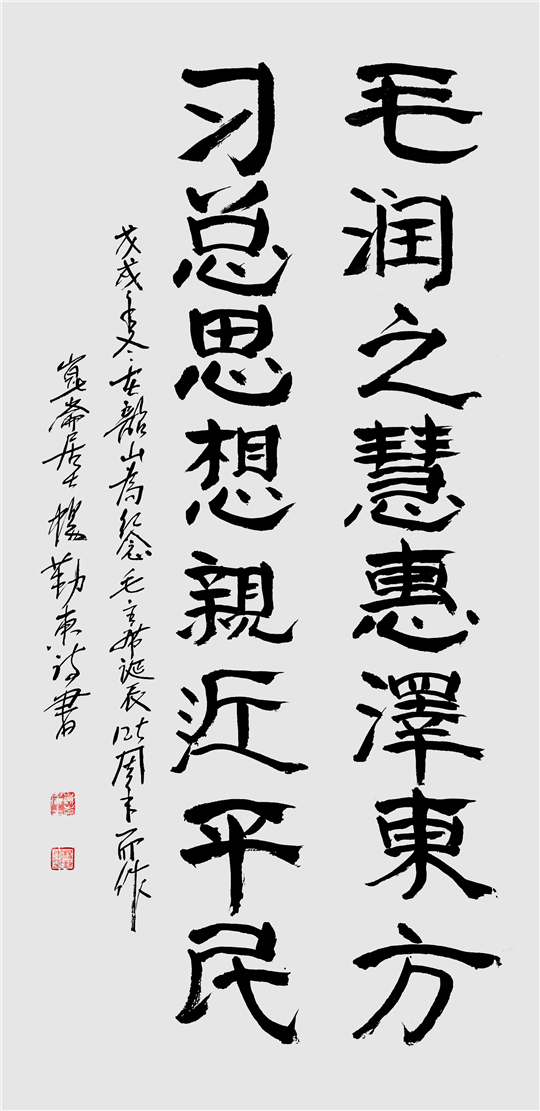 毛润之慧惠澤東方
习总思想親近平民
戊戌年冬在韶山為纪念毛主席诞辰125周年而作
崑崙居士樓勤東诗書